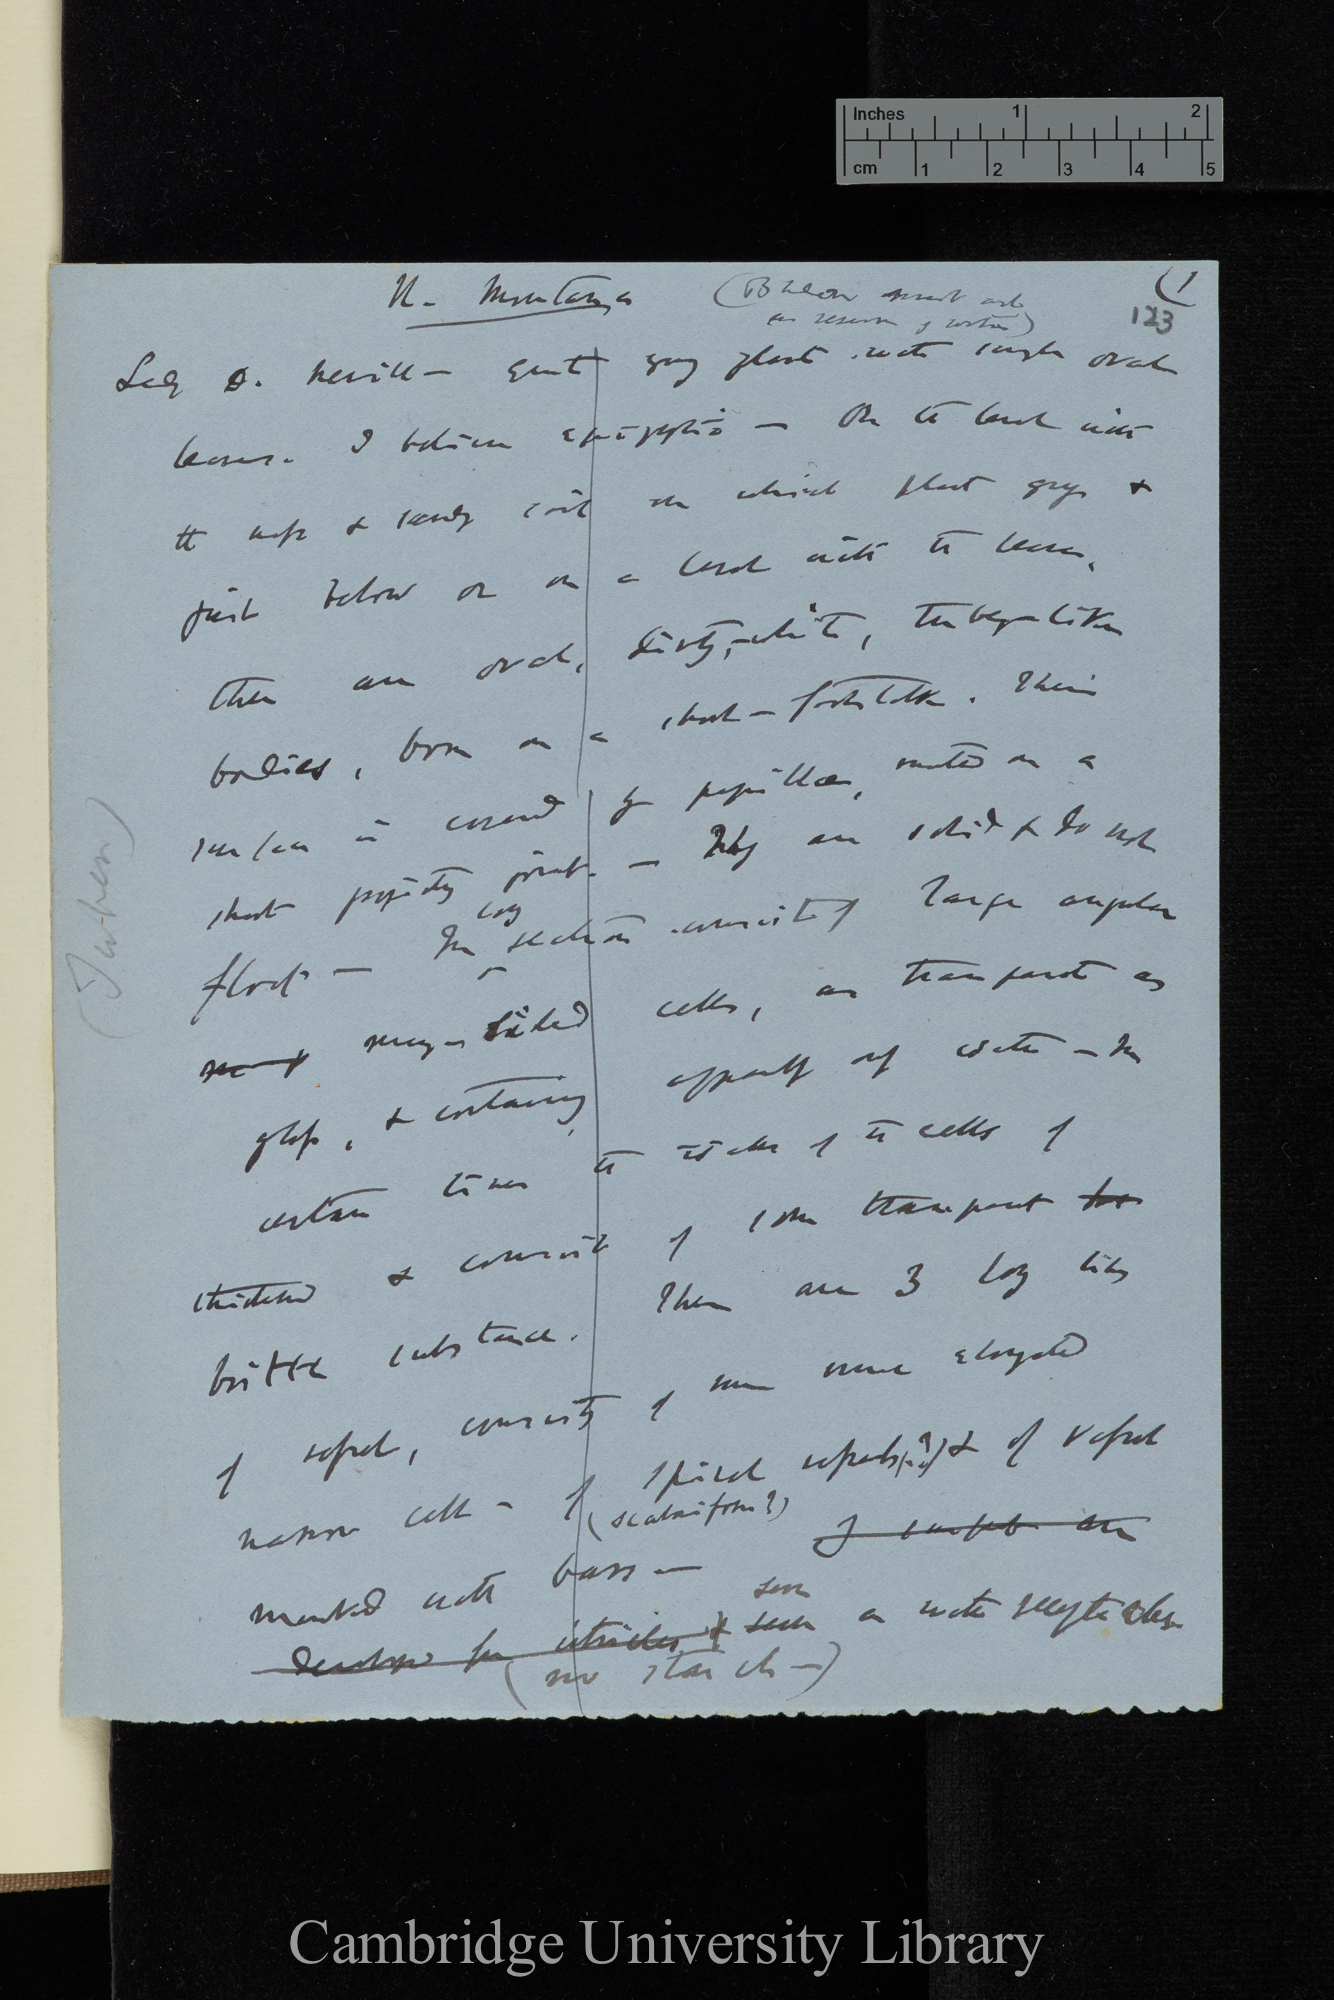 Inches 1 2
cm 1 2 3 4 5
U. Montana
(Bladders must act
as reservoirs of water)
(1
123
Lady D. Nevill — sent young plant with single oval
leaves. I believe epiphytic — On the level with
the moss & sandy soil in which plant grows &
just below or on a level with the leaves,
there are oval, dirty-white, tuber-like
bodies, borne on a short-footstalk. Their
surface is covered by papillæ, seated on a
short projecting point. — They are solid & do not
float — In long section consist of large angular
many-sided cells, as transparent as
glass, & containing apparently only water — In
certain times the walls of the cells
thickened & consist of some transparent
brittle substance. There are 3 long lines
of vessels, consisting of some more elongated
narrow cells — of spiral vessels(?) & of vessels
(scalariform?)
marked with bars —
seen
seen as water receptacles
(no starch —)
(Tubers)
Cambridge University Library